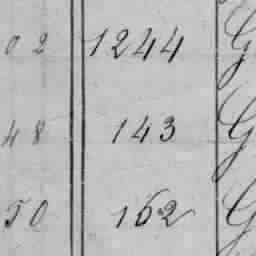 02 1244 G
48 143 G
50 162 G